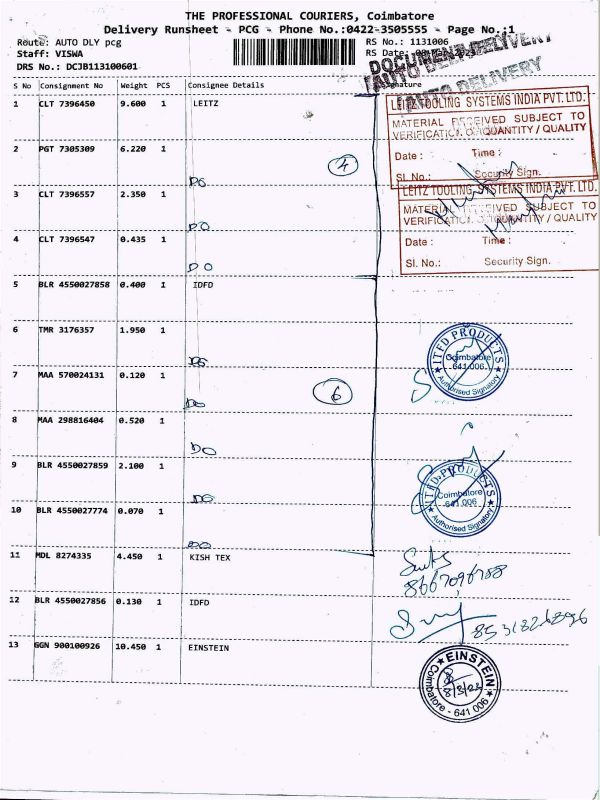 THE PROFESSIONAL COURIERS, Coimbatore
Delivery Runsheet - PCG - Phone No.:0422-3505555 - Page No.:1
Route: AUTO DLY pcg
RS No.: 1131006
Staff: VISWA
RS Date:
DRS No.: DCJB113100601
S No Consignment No Weight PCS Consignee Details Signature
DOCUMENT DELIVERY
AUTO DELIVERY
1 CLT 7396450 9.600 1 LEITZ
LEITZ TOOLING SYSTEMS INDIA PVT. LTD.
MATERIAL RECEIVED SUBJECT TO
VERIFICATION OF QUANTITY / QUALITY
Date : Time :
Sl. No.: Security Sign.
2 PGT 7305309 6.220 1
4
DO
LEITZ TOOLING SYSTEMS INDIA PVT. LTD.
MATERIAL RECEIVED SUBJECT TO
VERIFICATION OF QUANTITY / QUALITY
Date : Time :
Sl. No.: Security Sign.
3 CLT 7396557 2.350 1
DO
4 CLT 7396547 0.435 1
DO
5 BLR 4550027858 0.400 1 IDFD
6 TMR 3176357 1.950 1
DO
ITED PRODUCTS
Coimbatore
641 006.
Authorised Signatory
7 MAA 570024131 0.120 1
6
DO
8 MAA 298816404 0.520 1
DO
9 BLR 4550027859 2.100 1
DO
ITED PRODUCTS
Coimbatore
641 006
Authorised Signatory
10 BLR 4550027774 0.070 1
DO
11 MDL 8274335 4.450 1 KISH TEX
8667096788
12 BLR 4550027856 0.130 1 IDFD
8531826896
13 GGN 900100926 10.450 1 EINSTEIN
EINSTEIN
Coimbatore - 641 006